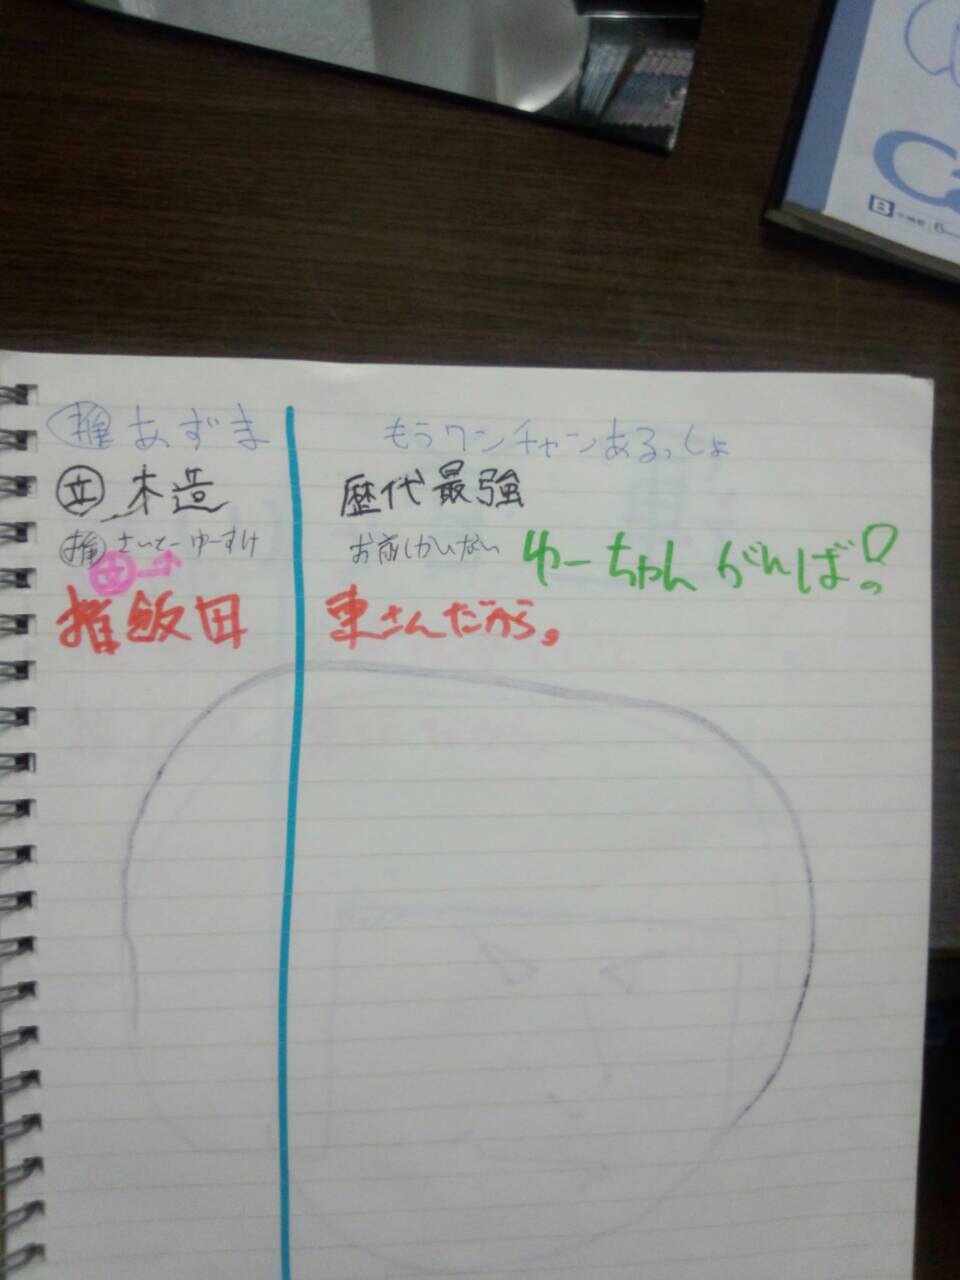 推 あずま もうワンチャンあるっしょ
立 木造 歴代最強
推 さいとーゆーすけ お前しかいない ゆーちゃん がんば!
推飯田 東さんだから。
B 6